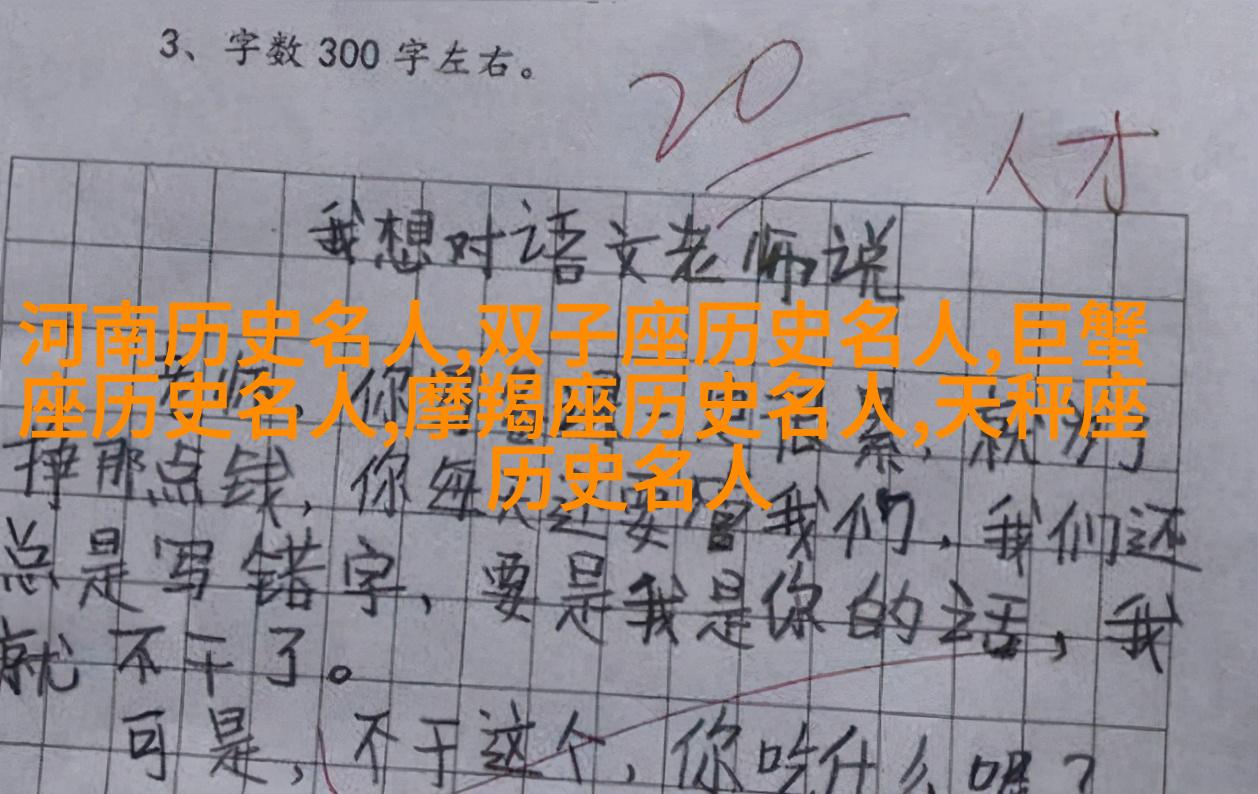 3、字数 300 字左右。
20
人才
我想对语文老师说
河南历史名人,双子座历史名人,巨蟹
座历史名人,摩羯座历史名人,天秤座
历史名人
老师,你
累,就为
挣那点钱,你每天还要管我们,我们还
总是写错字,要是我是你的话,我
就不干了。
可是,不干这个,你吃什么呢?